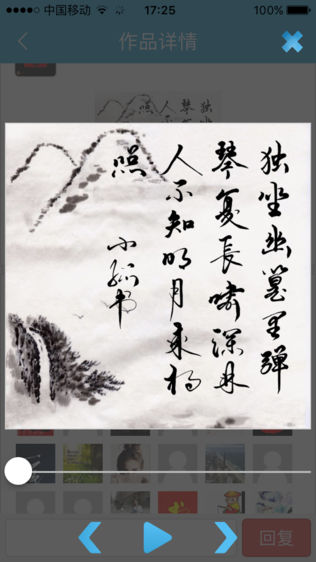 中国移动 17:25 100%
作品详情
独坐幽篁里弹
琴复长啸深林
人不知明月来相
照
小
书
回复